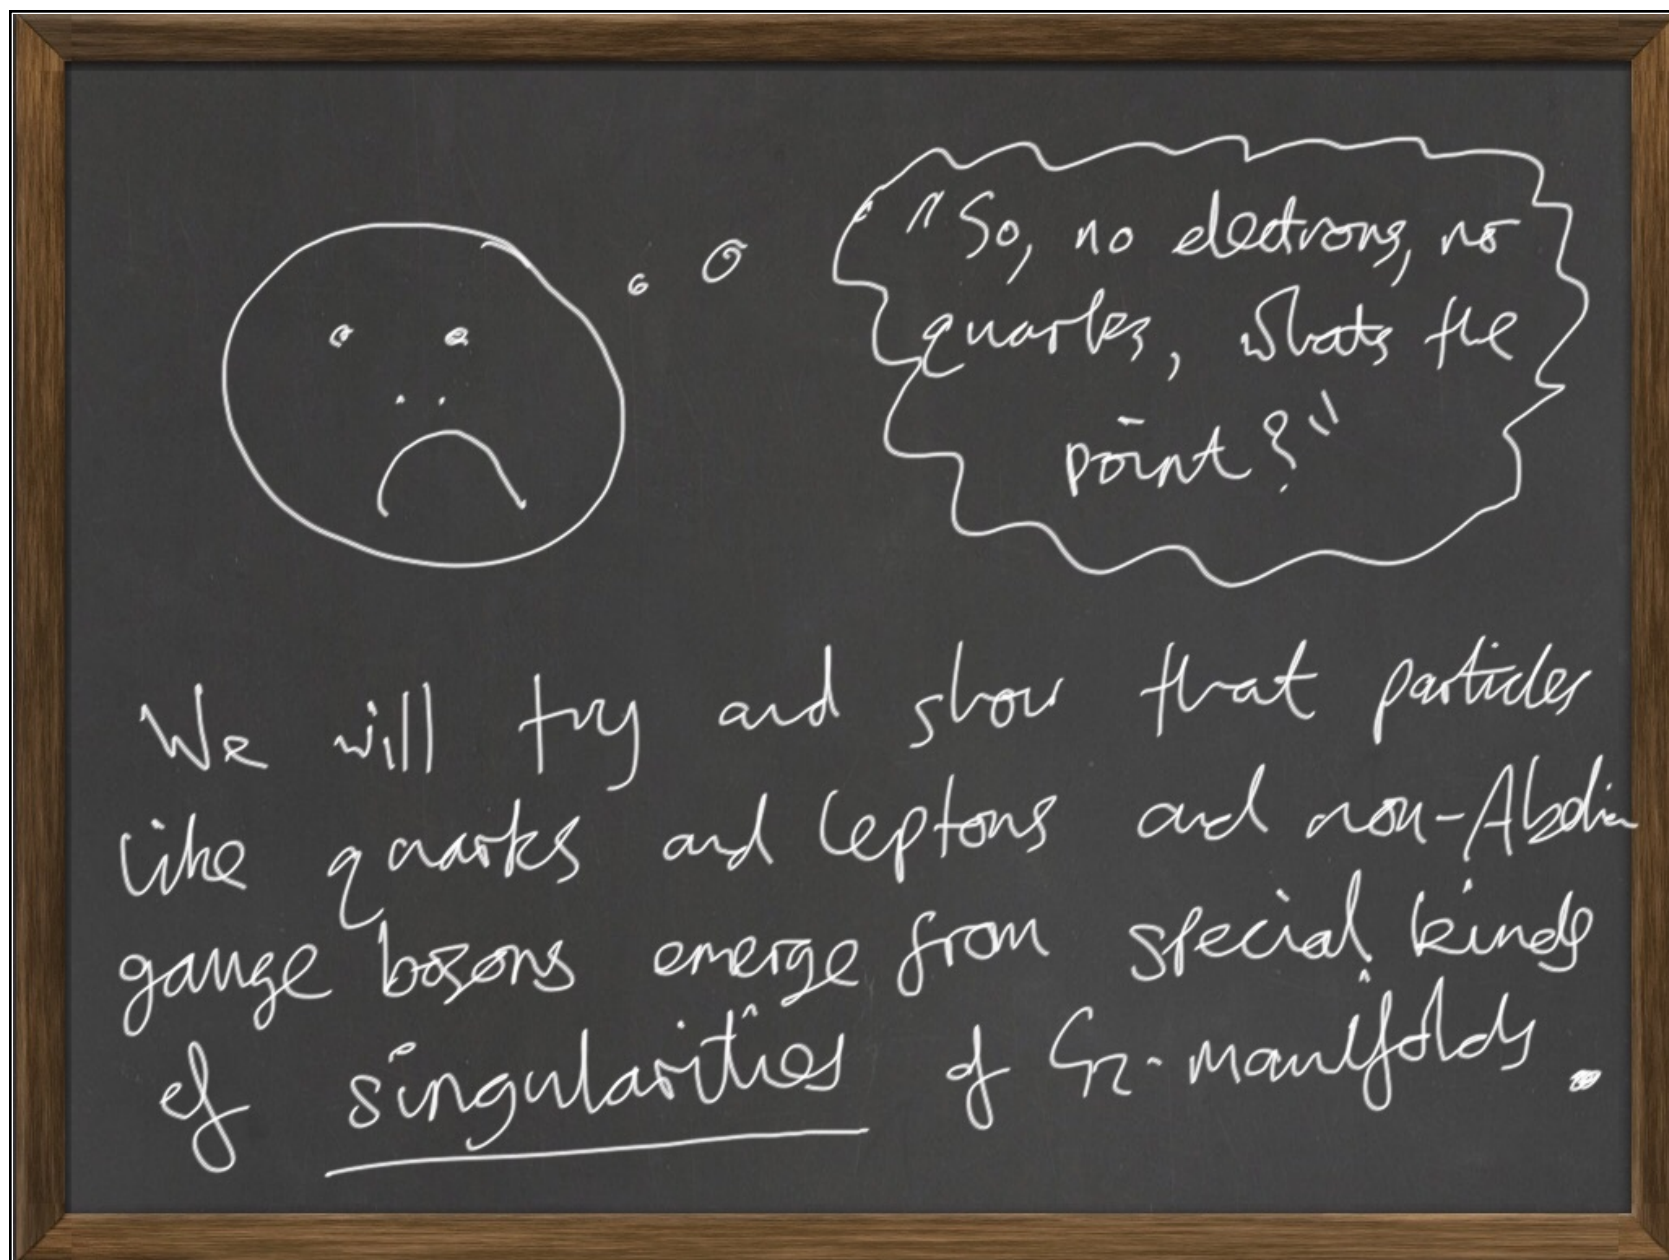 "So, no electrons, no
quarks, whats the
point?"
We will try and show that particles
like quarks and leptons and non-Abelian
gauge bosons emerge from special kinds
of singularities of G2-manifolds.